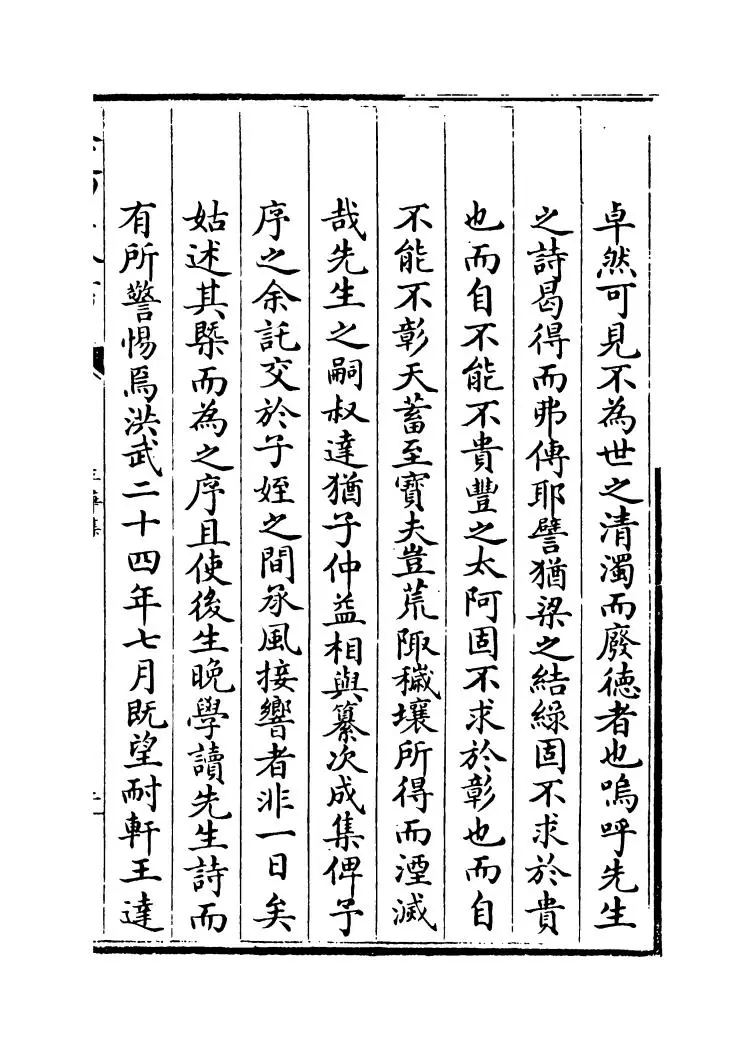 卓然可見不為世之清濁而廢徳者也嗚呼先生
之詩曷得而弗傳耶譬猶梁之結綠固不求於貴
也而自不能不貴豐之太阿固不求於彰也而自
不能不彰天蓄至寶夫豈荒陬穢壤所得而湮滅
哉先生之嗣叔達猶子仲益相與纂次成集俾予
序之余託交於子姪之間承風接響者非一日矣
姑述其槩而為之序且使後生晚學讀先生詩而
有所警惕焉洪武二十四年七月既望耐軒王達